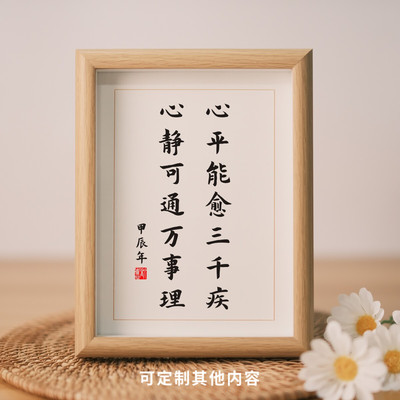 心平能愈三千疾
心静可通万事理
甲辰年
可定制其他内容